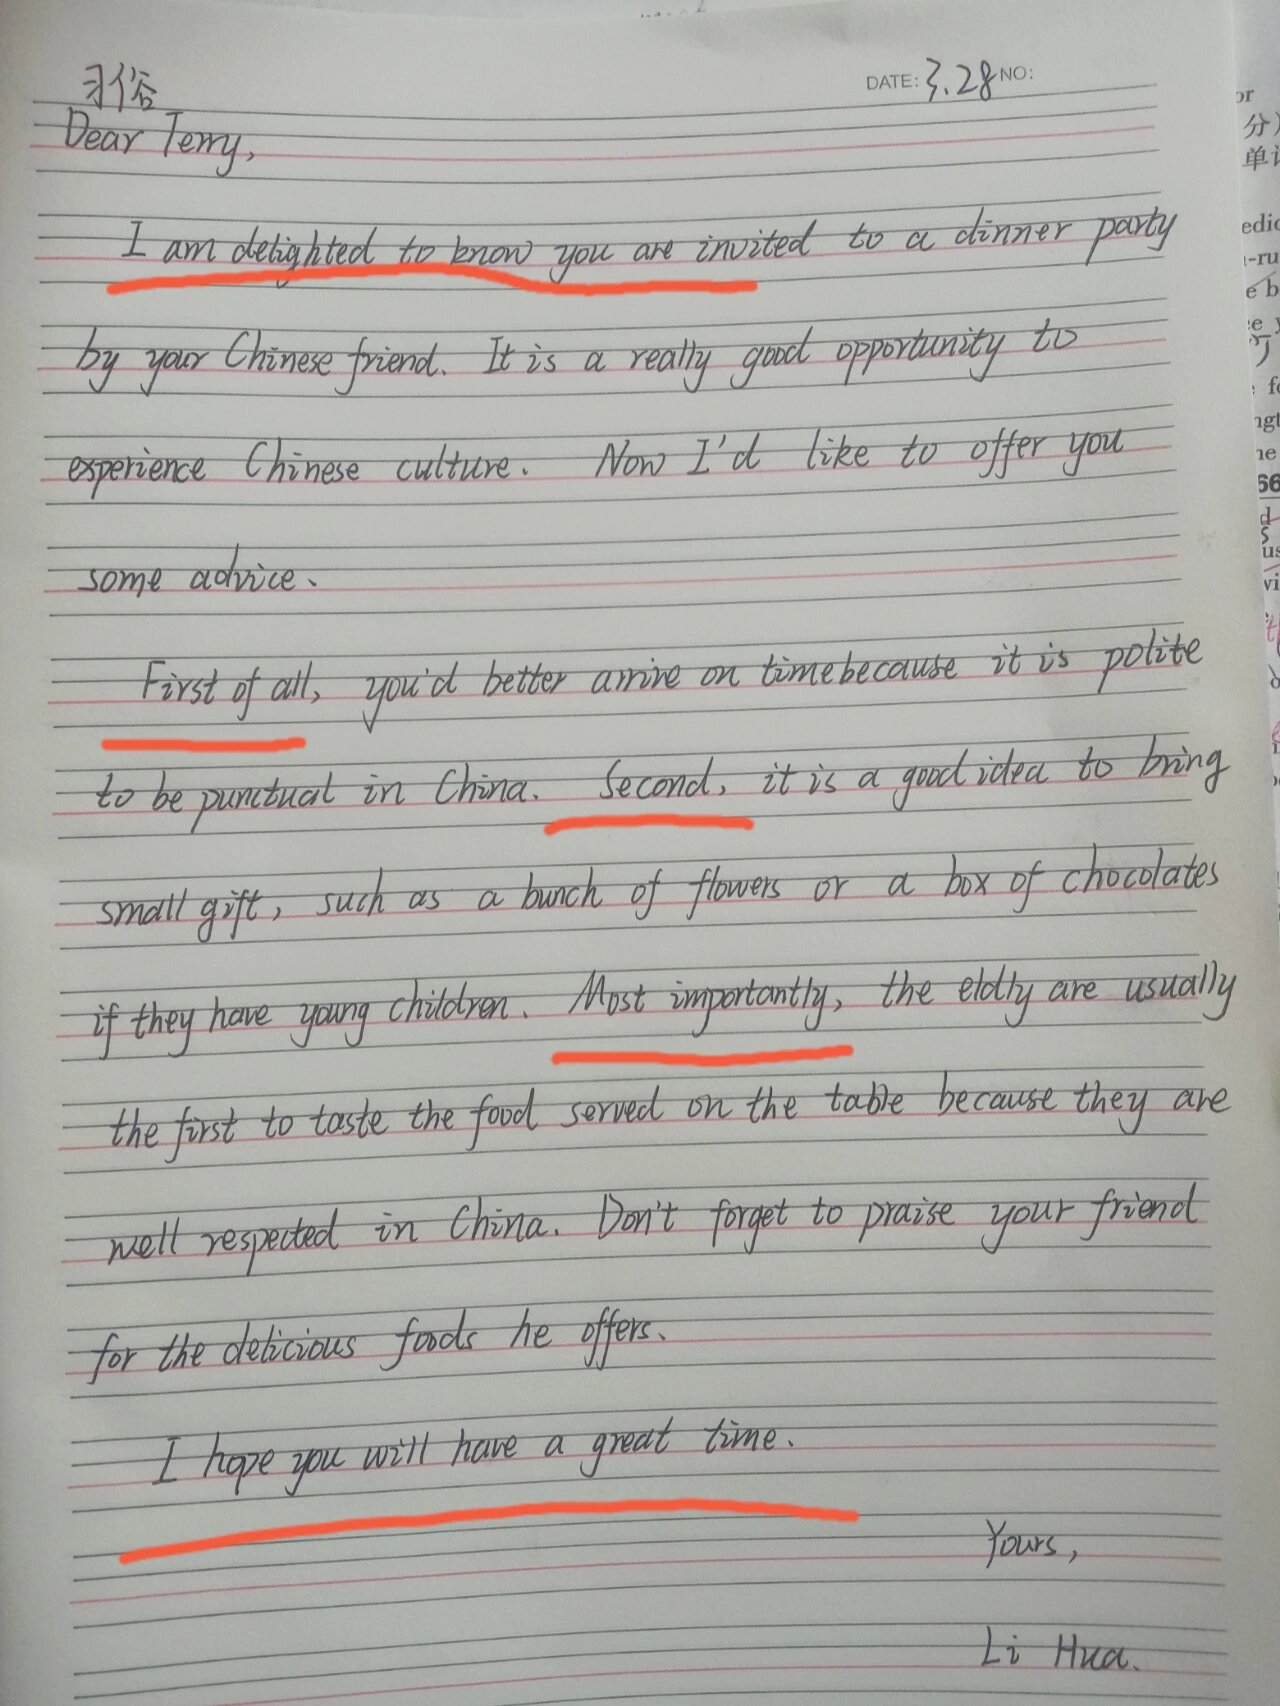 习俗
DATE: 3.28 NO:
Dear Terry,
I am delighted to know you are invited to a dinner party
by your Chinese friend. It is a really good opportunity to
experience Chinese culture. Now I'd like to offer you
some advice.
First of all, you'd better arrive on time because it is polite
to be punctual in China. Second, it is a good idea to bring
small gift, such as a bunch of flowers or a box of chocolates
if they have young children. Most importantly, the eldly are usually
the first to taste the food served on the table because they are
well respected in China. Don't forget to praise your friend
for the delicious foods he offers.
I hope you will have a great time.
Yours,
Li Hua.
or
分)